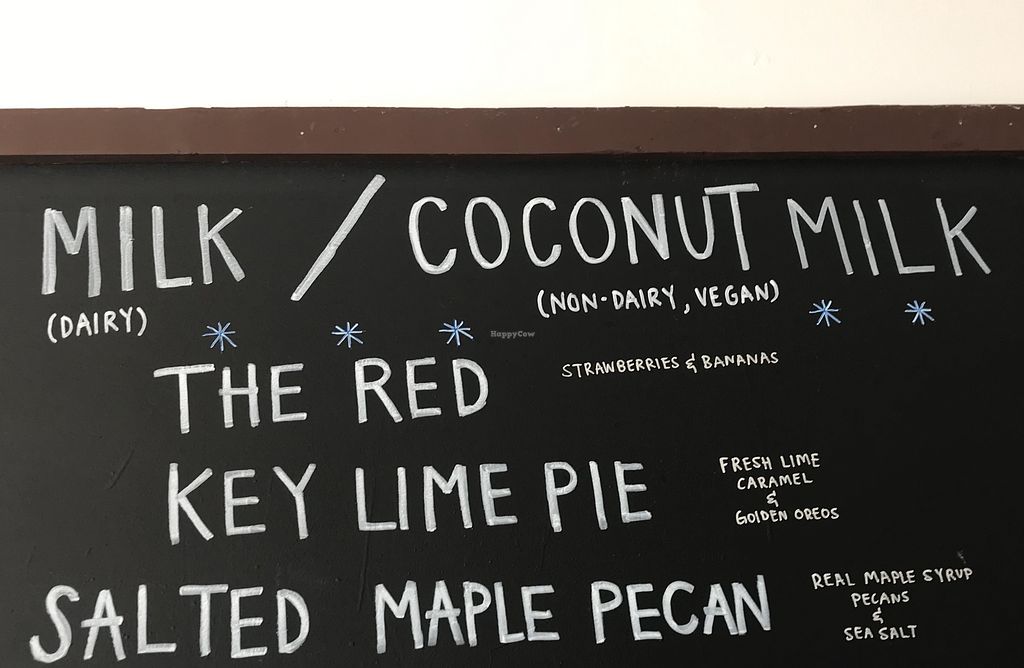 MILK / COCONUT MILK
(DAIRY) (NON-DAIRY, VEGAN)
HappyCow
THE RED STRAWBERRIES & BANANAS
KEY LIME PIE
FRESH LIME
CARAMEL
&
GOLDEN OREOS
SALTED MAPLE PECAN
REAL MAPLE SYRUP
PECANS
&
SEA SALT